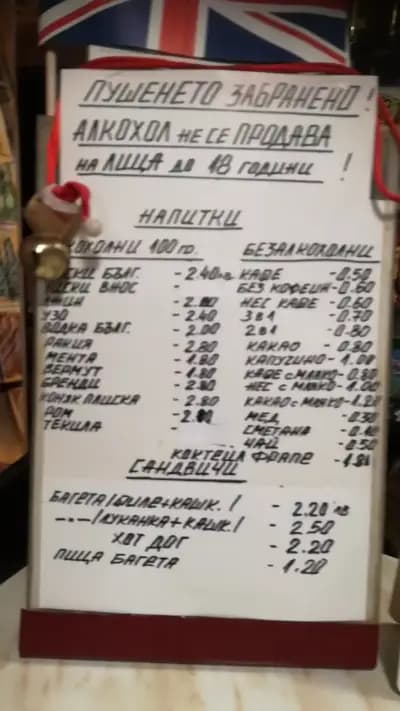 ПУШЕНЕТО ЗАБРАНЕНО!
АЛКОХОЛ НЕ СЕ ПРОДАВА
НА ЛИЦА ДО 18 ГОДИНИ !
НАПИТКИ
КОХОЛНИ 100 гр.
СКИ БЪЛГ. - 2.40лв
СКИ ВНОС -
ДЖИН -
УЗО - 2.40
ВОДКА БЪЛГ. - 2.00
РАКИЯ - 2.80
МЕНТА - 1.80
ВЕРМУТ - 1.80
БРЕНДИ - 2.80
КОНЯК ПЛИСКА - 2.80
РОМ -
ТЕКИЛА -
БЕЗАЛКОХОЛНИ
КАФЕ - 0.50
БЕЗ КОФЕИН - 0.60
НЕС КАФЕ - 0.60
3 в 1 - 0.70
2 в 1 - 0.80
КАКАО - 0.80
КАПУЧИНО - 1.00
КАФЕ с МЛЯКО - 0.80
НЕС с МЛЯКО - 1.00
КАКАО с МЛЯКО - 1.20
МЕД - 0.30
СМЕТАНА -
ЧАЙ - 0.50
КОКТЕИЛ ФРАПЕ -
САНДВИЧИ
БАГЕТА /ФИЛЕ+КАШК./ - 2.20 лв
-"- /ЛУКАНКА+КАШК./ - 2.50
ХОТ ДОГ - 2.20
ПИЦА БАГЕТА - 1.20